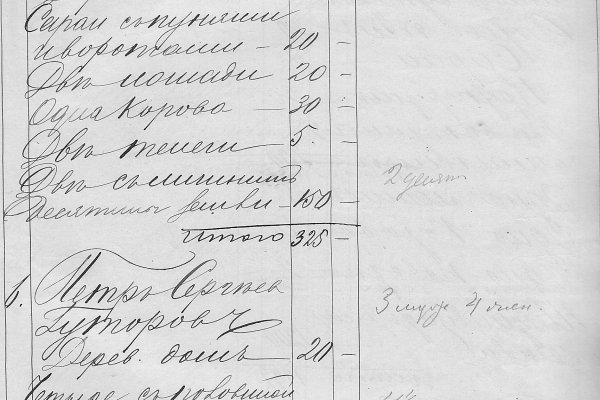 Сараи съ пунями
и воротами – 20 –
Двѣ лошади 20 –
Одна корова – 30 –
Двѣ телеги 5. –
Двѣ съ
Десятины земли – 150 – 2 десят
Итого 325 –
6. Петръ Сергѣев
3 муж 4 жен.
Гуторовъ
Дерев. домъ – 20 –
Четыре съ половиной